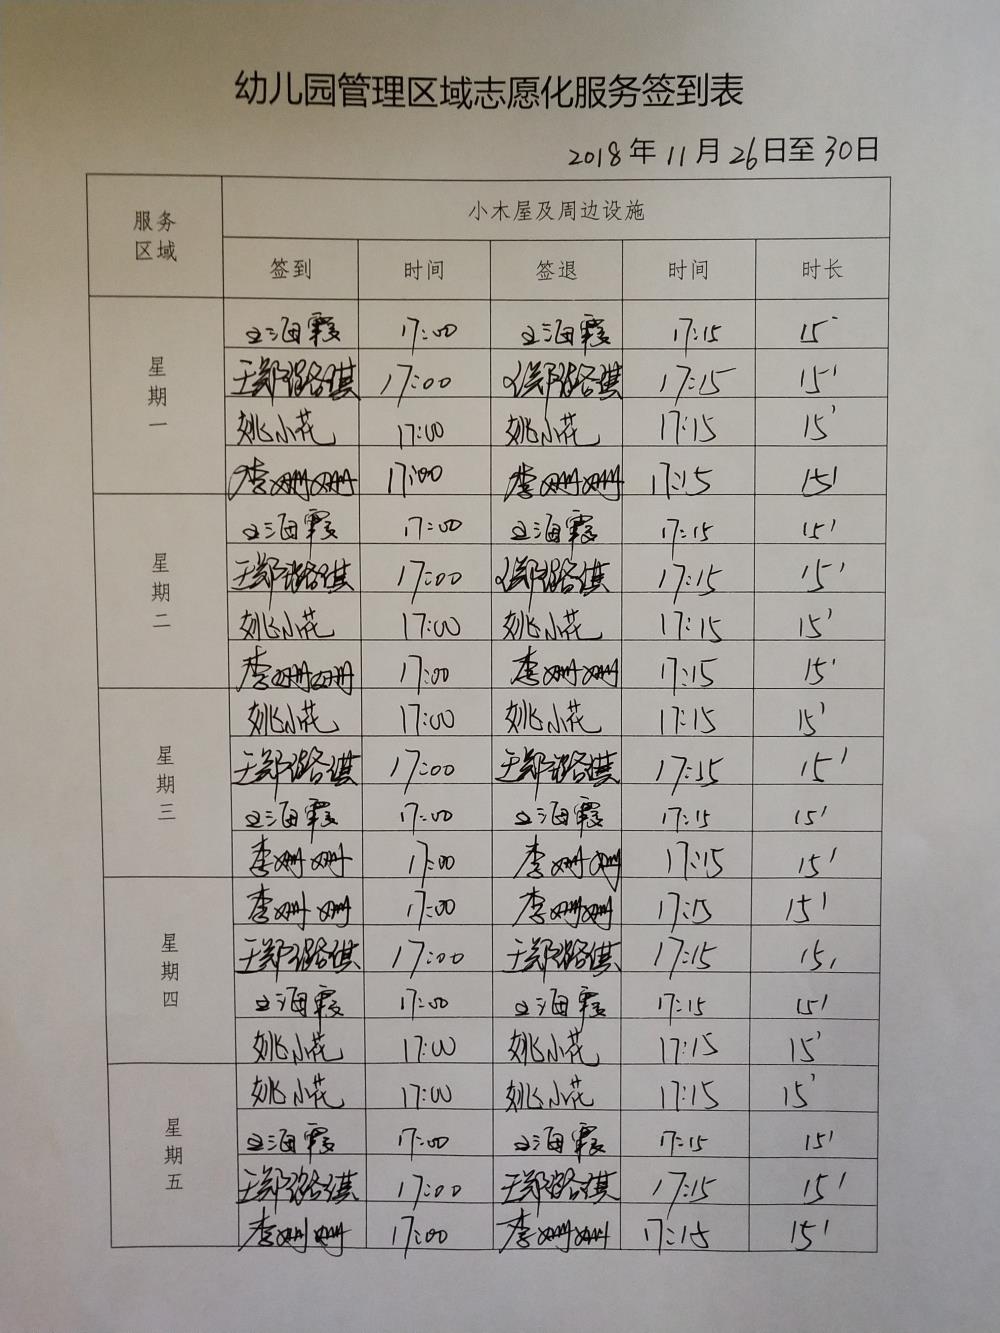 幼儿园管理区域志愿化服务签到表
2018年11月26日至30日
服务区域 小木屋及周边设施
签到 时间 签退 时间 时长
星期一
海霞 17:00 海霞 17:15 15'
王郑璐祺 17:00 郑璐祺 17:15 15'
姚小花 17:00 姚小花 17:15 15'
李姗姗 17:00 李姗姗 17:15 15'
星期二
海霞 17:00 海霞 17:15 15'
王郑璐祺 17:00 郑璐祺 17:15 15'
姚小花 17:00 姚小花 17:15 15'
李姗姗 17:00 李姗姗 17:15 15'
星期三
姚小花 17:00 姚小花 17:15 15'
王郑璐祺 17:00 王郑璐祺 17:15 15'
海霞 17:00 海霞 17:15 15'
李姗姗 17:00 李姗姗 17:15 15'
星期四
李姗姗 17:00 李姗姗 17:15 15'
王郑璐祺 17:00 王郑璐祺 17:15 15,
海霞 17:00 海霞 17:15 15'
姚小花 17:00 姚小花 17:15 15'
星期五
姚小花 17:00 姚小花 17:15 15'
海霞 17:00 海霞 17:15 15'
王郑璐祺 17:00 王郑璐祺 17:15 15'
李姗姗 17:00 李姗姗 17:15 15'